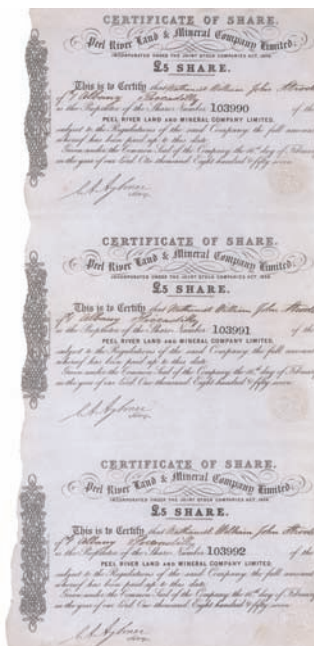 CERTIFICATE OF SHARE.
Peel River Land & Mineral Company Limited.
INCORPORATED UNDER THE JOINT STOCK COMPANIES ACT, 1856
£5 SHARE.
This is to Certify that Nathaniel William John
of Albany Piccadilly
is the Proprietor of the Share Number 103990 of the
PEEL RIVER LAND AND MINERAL COMPANY LIMITED,
subject to the Regulations of the said Company, the full amount
whereof has been paid up to this date
Given under the Common Seal of the Company the 16th day of
in the year of our Lord One thousand Eight hundred & fifty seven
CERTIFICATE OF SHARE.
Peel River Land & Mineral Company Limited.
INCORPORATED UNDER THE JOINT STOCK COMPANIES ACT, 1856
£5 SHARE.
This is to Certify that Nathaniel William John
of Albany Piccadilly
is the Proprietor of the Share Number 103991 of the
PEEL RIVER LAND AND MINERAL COMPANY LIMITED,
subject to the Regulations of the said Company, the full amount
whereof has been paid up to this date
Given under the Common Seal of the Company the 16th day of
in the year of our Lord One thousand Eight hundred & fifty seven
CERTIFICATE OF SHARE.
Peel River Land & Mineral Company Limited.
INCORPORATED UNDER THE JOINT STOCK COMPANIES ACT, 1856
£5 SHARE.
This is to Certify that Nathaniel William John
of Albany Piccadilly
is the Proprietor of the Share Number 103992 of the
PEEL RIVER LAND AND MINERAL COMPANY LIMITED,
subject to the Regulations of the said Company, the full amount
whereof has been paid up to this date
Given under the Common Seal of the Company the 16th day of
in the year of our Lord One thousand Eight hundred & fifty seven